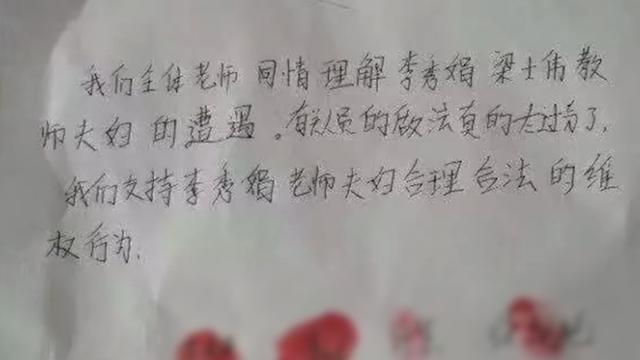 我们全体老师同情理解李秀娟梁士伟教
师夫妇的遭遇。有关人员的做法真的太过分了,
我们支持李秀娟老师夫妇合理合法的维
权行为.